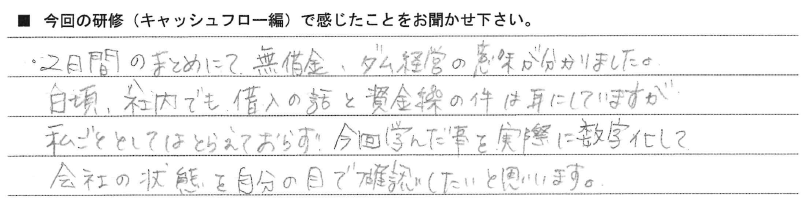 ■ 今回の研修（キャッシュフロー編）で感じたことをお聞かせ下さい。
・2日間のまとめにて、無借金、ダム経営の意味が分かりました。
日頃、社内でも借入の話と資金繰の件は耳にしていますが
私ごととしてはとらえておらず、今回学んだ事を実際に数字化して
会社の状態を自分の目で確認したいと思います。